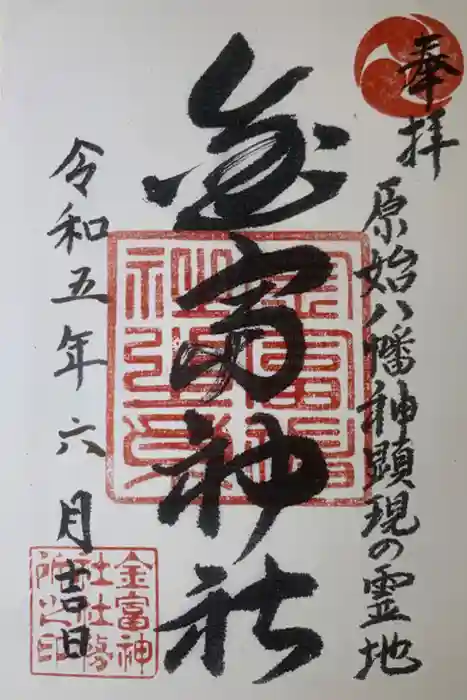 奉拝
原始八幡神顕現の霊地
金富神社
令和五年六月吉日
金富神
社社務
所之印